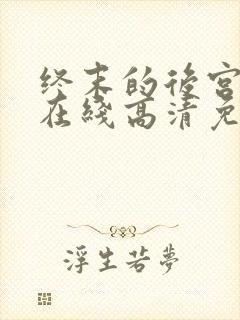 终末的后宫
在綫高清免
浮生若夢